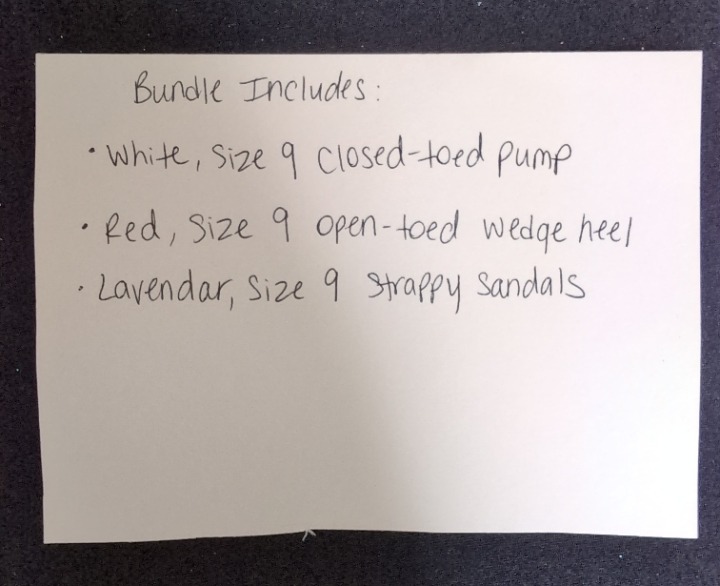 Bundle Includes:
• White, Size 9 closed-toed pump
• Red, Size 9 open-toed wedge heel
• Lavendar, Size 9 strappy sandals